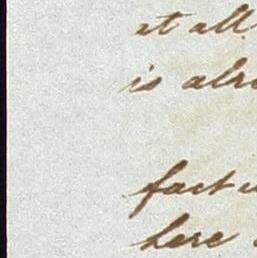 at all
is alre
fact
here